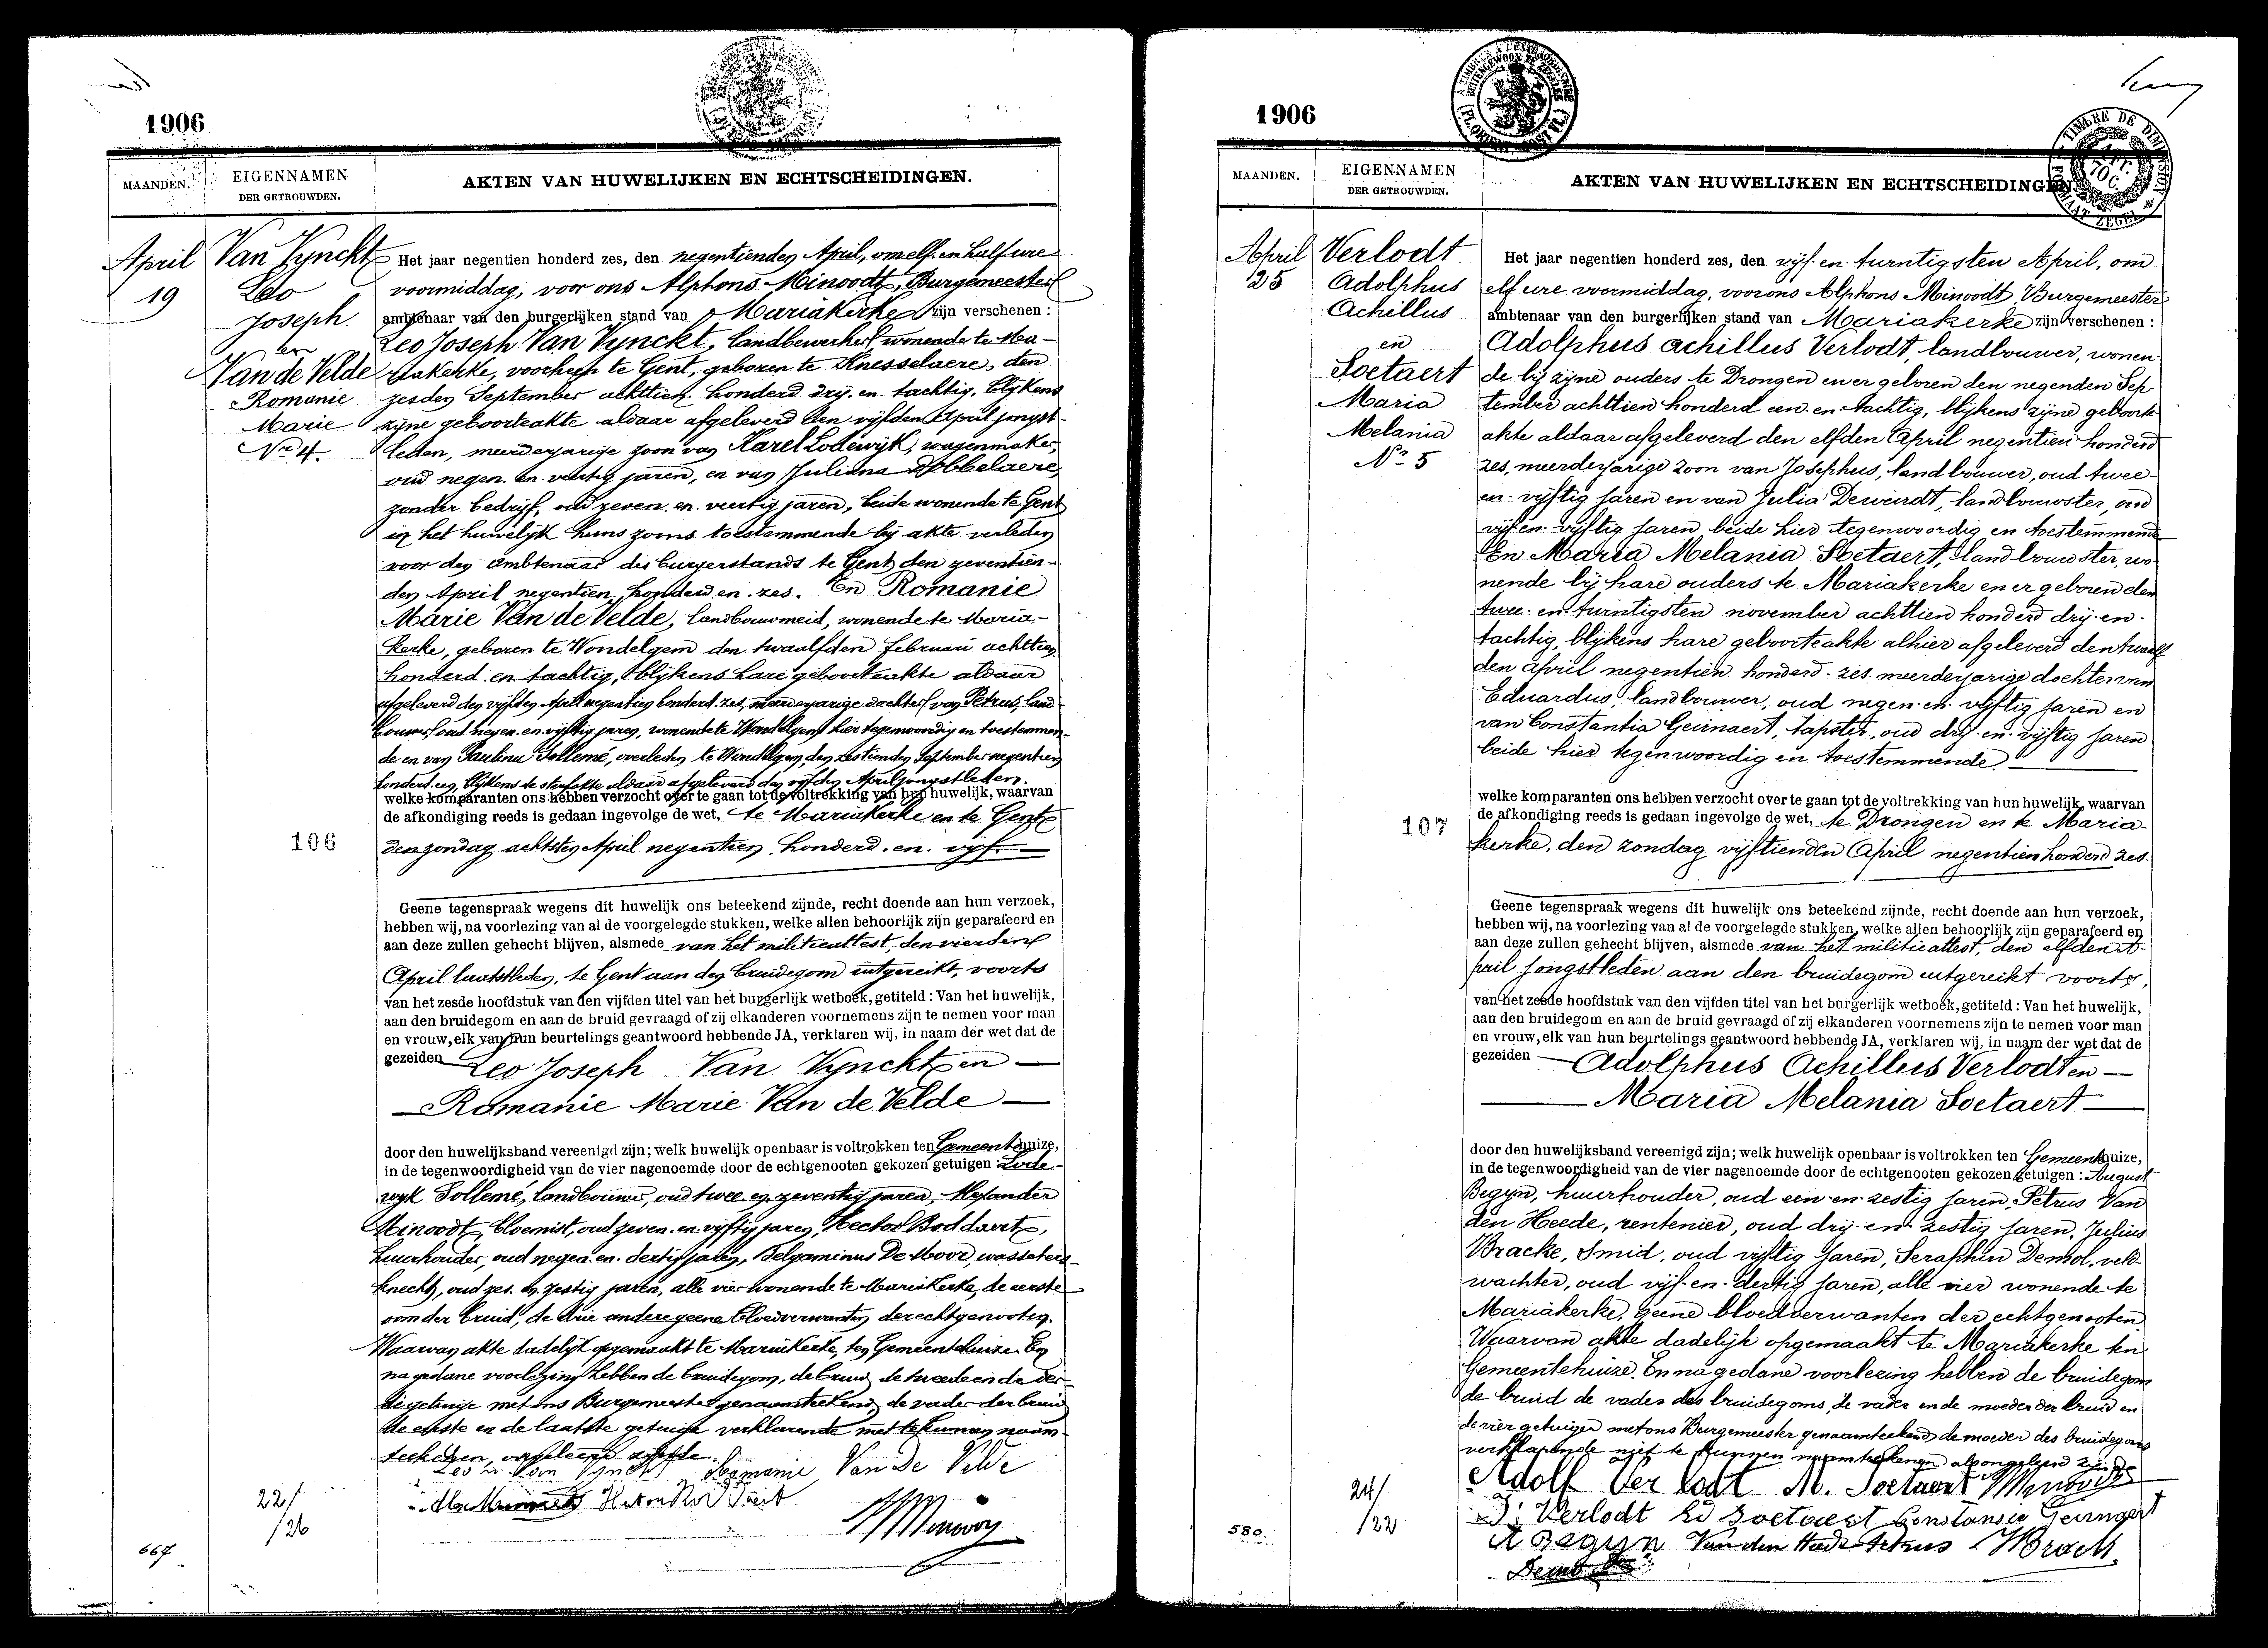 1906
MAANDEN.
EIGENNAMEN
DER GETROUWDEN.
AKTEN VAN HUWELIJKEN EN ECHTSCHEIDINGEN.
April
19
Van Vynckt
Leo
Joseph
en
Van de Velde
Romanie
Marie
No 4
Het jaar negentien honderd zes, den negentienden April, om elf en half ure
voormiddag, voor ons Alphons Minoodt, Burgemeester
ambtenaar van den burgerlijken stand van Mariakerke zijn verschenen :
Leo Joseph Van Vynckt, landbewerker, wonende te Ma-
riakerke, voorheen te Gent, geboren te Knesselaere, den
zesden September achttien honderd drij en tachtig, blijkens
zijne geboorteakte aldaar afgeleverd den vijfden April jongst-
leden, meerderjarige zoon van Karel Lodewijk, wagenmaker,
oud negen en veertig jaren, en van Juliana Dobbelaere
zonder bedrijf, oud zeven en veertig jaren, beide wonende te Gent
in het huwelijk huns zoons toestemmende bij akte verleden
voor den Ambtenaar des burgerstands te Gent den zeventien-
den April negentien honderd en zes. En Romanie
Marie Van de Velde, landbouwmeid, wonende te Maria-
kerke, geboren te Wondelgem den twaalfden februari achttien
honderd en tachtig, blijkens hare geboorteakte aldaar
afgeleverd den vijfden April negentien honderd zes, meerderjarige dochter van Petrus, land-
bouwer, oud negen en vijftig jaren, wonende te Wondelgem hier tegenwoordig en toestemmen-
de en van Paulina Sollemé, overleden te Wondelgem den zestienden September negentien
honderd een, blijkens de sterfakte aldaar afgeleverd den vijfden April jongstleden.
welke komparanten ons hebben verzocht over te gaan tot de voltrekking van hun huwelijk, waarvan
de afkondiging reeds is gedaan ingevolge de wet, te Mariakerke en te Gent
106
den zondag achtsten April negentien honderd en vijf.
Geene tegenspraak wegens dit huwelijk ons beteekend zijnde, recht doende aan hun verzoek,
hebben wij, na voorlezing van al de voorgelegde stukken, welke allen behoorlijk zijn geparafeerd en
aan deze zullen gehecht blijven, alsmede van het militieattest, den vierden
April laatstleden, te Gent aan den bruidegom uitgereikt, voorts
van het zesde hoofdstuk van den vijfden titel van het burgerlijk wetboek, getiteld : Van het huwelijk,
aan den bruidegom en aan de bruid gevraagd of zij elkanderen voornemens zijn te nemen voor man
en vrouw, elk van hun beurtelings geantwoord hebbende JA, verklaren wij, in naam der wet dat de
gezeiden Leo Joseph Van Vynckt en
Romanie Marie Van de Velde
door den huwelijksband vereenigd zijn; welk huwelijk openbaar is voltrokken ten Gemeentehuize,
in de tegenwoordigheid van de vier nagenoemde door de echtgenooten gekozen getuigen : Lode-
wijk Sollemé, landbouwer, oud twee en zeventig jaren, Alexander
Minoodt, bloemist, oud zeven en vijftig jaren, Hector Boddaert,
huurhouder, oud negen en dertig jaren, Belgaminus De Moor, wassehers-
knecht, oud zes en zestig jaren, alle vier wonende te Mariakerke, de eerste
oom der bruid, de drie andere geene bloedverwanten der echtgenooten.
Waarvan akte dadelijk opgemaakt te Mariakerke, ten Gemeentehuize. En
na gedane voorlezing hebben de bruidegom, de bruid, de tweede en de der-
de getuige met ons Burgemeester genaamteekend, de vader der bruid
de eerste en de laatste getuige verklarende niet te kunnen naam-
teekenen
Romanie Van De Velde
22/
/26
667
1906
MAANDEN.
EIGENNAMEN
DER GETROUWDEN.
AKTEN VAN HUWELIJKEN EN ECHTSCHEIDINGEN
April
25
Verlodt
Adolphus
Achillus
en
Soetaert
Maria
Melania
No 5
Het jaar negentien honderd zes, den vijf en twintigsten April, om
elf ure voormiddag, voor ons Alphons Minoodt, Burgemeester
ambtenaar van den burgerlijken stand van Mariakerke zijn verschenen :
Adolphus Achillus Verlodt, landbouwer, wonen
de bij zijne ouders te Drongen en er geboren den negenden Sep-
tember achttien honderd een en tachtig, blijkens zijne geboorte-
akte aldaar afgeleverd den elfden April negentien honderd
zes, meerderjarige zoon van Josephus, landbouwer, oud twee-
en-vijftig jaren en van Julia Deweirdt, landbouwster, oud
vijf en vijftig jaren, beide hier tegenwoordig en toestemmende
En Maria Melania Soetaert, landbouwster, wo
nende bij hare ouders te Mariakerke en er geboren den
twee-en-twintigsten november achttien honderd drij-en-
tachtig, blijkens hare geboorteakte alhier afgeleverd den twaalf
den April negentien honderd zes. meerderjarige dochter van
Eduardus, landbouwer, oud negen-en-vijftig jaren en
van Constantia Geirnaert, tapster, oud drij-en-vijftig jaren
beide hier tegenwoordig en toestemmende.
welke komparanten ons hebben verzocht over te gaan tot de voltrekking van hun huwelijk, waarvan
de afkondiging reeds is gedaan ingevolge de wet, te Drongen en te Maria-
107
kerke, den zondag vijftienden April negentien honderd zes.
Geene tegenspraak wegens dit huwelijk ons beteekend zijnde, recht doende aan hun verzoek,
hebben wij, na voorlezing van al de voorgelegde stukken, welke allen behoorlijk zijn geparafeerd en
aan deze zullen gehecht blijven, alsmede van het militieattest, den elfden A-
pril jongstleden aan den bruidegom uitgereikt voorts,
van het zesde hoofdstuk van den vijfden titel van het burgerlijk wetboek, getiteld : Van het huwelijk,
aan den bruidegom en aan de bruid gevraagd of zij elkanderen voornemens zijn te nemen voor man
en vrouw, elk van hun beurtelings geantwoord hebbende JA, verklaren wij, in naam der wet dat de
gezeiden Adolphus Achillus Verlodt en
Maria Melania Soetaert
door den huwelijksband vereenigd zijn; welk huwelijk openbaar is voltrokken ten Gemeentehuize,
in de tegenwoordigheid van de vier nagenoemde door de echtgenooten gekozen getuigen : August
Begijn, huurhouder, oud een-en-zestig jaren, Petrus Van
den Heede, rentenier, oud drij-en-zestig jaren, Julius
Bracke, Smid, oud vijftig jaren, Seraphin Demol, veld
wachter, oud vijf-en-dertig jaren, alle vier wonende te
Mariakerke, geene bloedverwanten der echtgenooten
Waarvan akte dadelijk opgemaakt te Mariakerke ten
Gemeentehuize. En na gedane voorlezing hebben de bruidegom
de bruid de vader des bruidegoms, de vader en de moeder der bruid en
de vier getuigen met ons Burgemeester genaamteekend, de moeder des bruidegoms
verklarende niet te kunnen naamteekenen als ongeleerd zijnde
Adolf Verlodt M. Soetaert
J. Verlodt Ed Soetaert Constansia Geirnaert
A Begijn Van den Heede Petrus
24/
/22
580